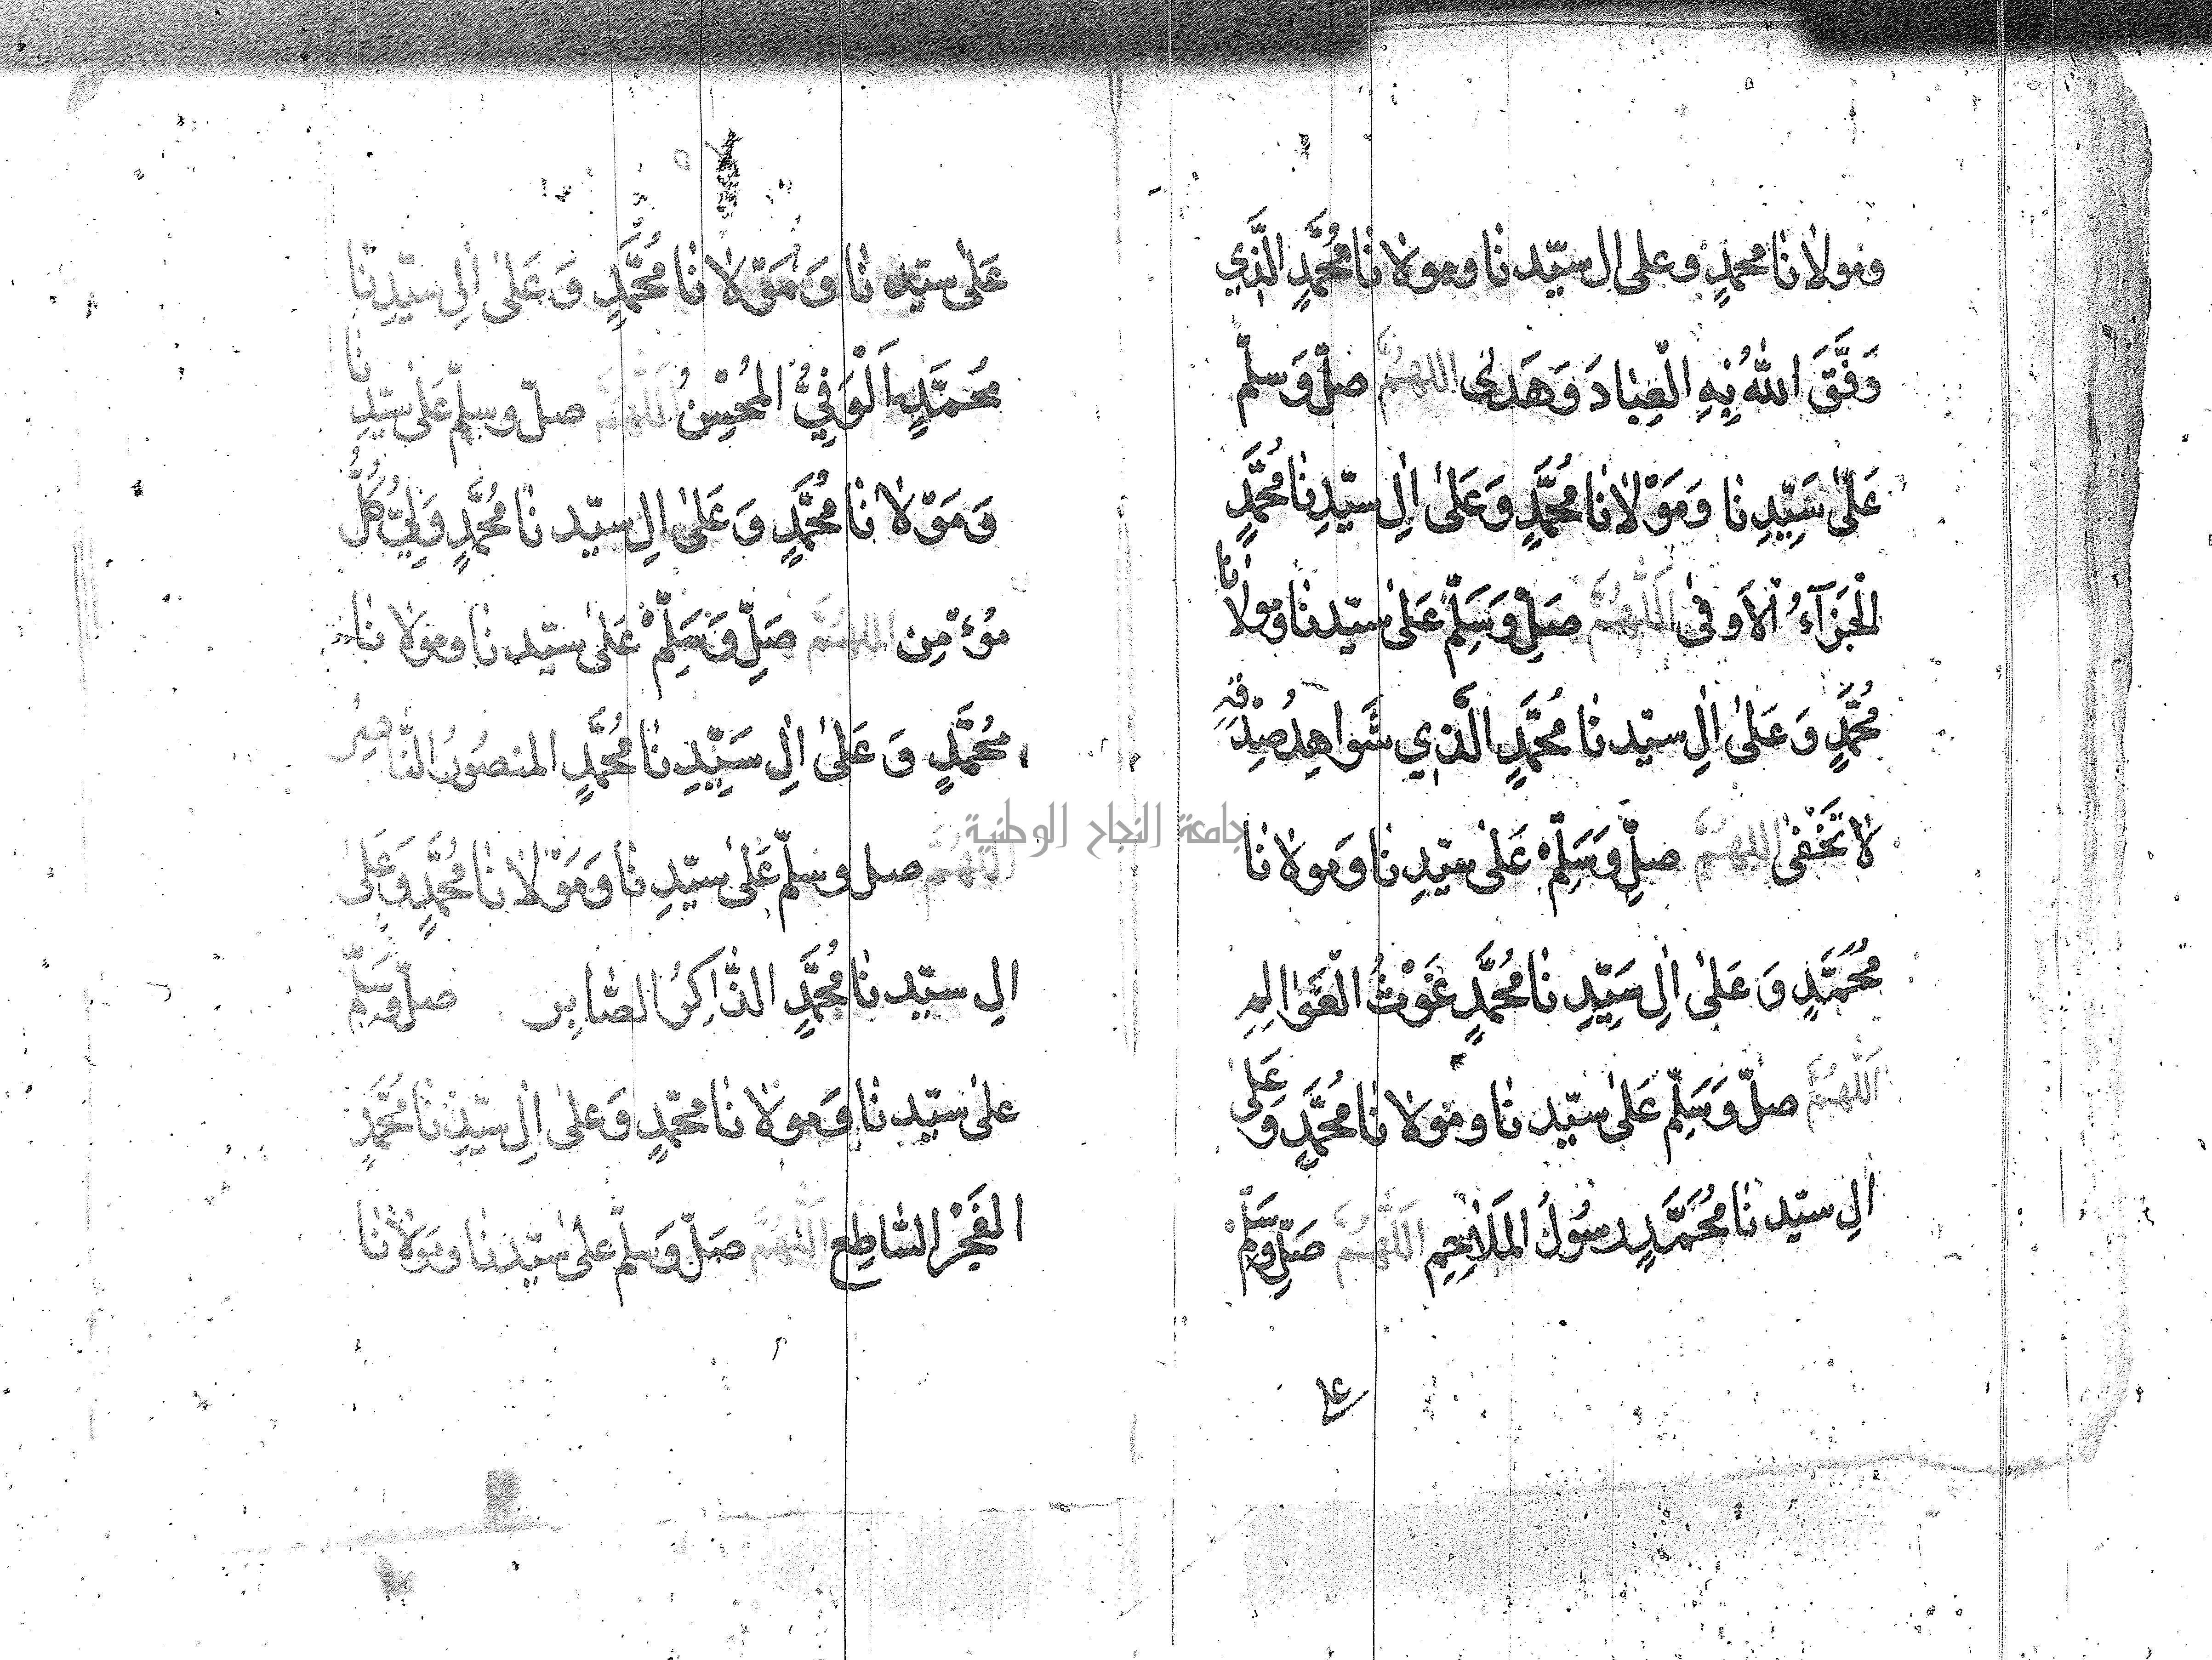 ومولانا محمدٍ وعلى ال سيّدنا ومولانا محُمَّدٍ الَّذِي
وَفَّقَ اللهُ بِهِ الْعِبَادَ وَهَدىٰ اللهُمَّ صلّ وَسلّم
عَلىٰ سَيِّدِنا وَمَوْلانا محُمَّدٍ وَعَلىٰ اٰلِ سيّدِنا محُمَّدٍ
الْجَزَآءُ الاَوفىٰ اَللّٰهُمَّ صَلِّ وَسَلِّمْ عَلىٰ سيّدنا ومولانا
محُمَّدٍ وَعَلىٰ اٰلِ سيّدنا محُمَّدٍ الَّذِي شَواهِدُ صِدْقِهِ
لا تَخْفىٰ اللهُمَّ صلِّ وَسَلِّمْ عَلىٰ سيّدِنا وَمولانا
محُمَّدٍ وَعَلىٰ اٰلِ سَيِّدِنا محُمَّدٍ غَوْثُ الْعَوَالِمِ
اَللّٰهُمَّ صلّ وَسَلِّمْ عَلىٰ سيّدنا ومَولانا محُمَّدٍ وَعَلىٰ
اٰلِ سيّدنا محُمَّدٍ رسُولُ المَلَاحِمِ اَللّٰهُمَّ صَلِّ وسَلِّمْ
على
عَلىٰ سيّدنا وَمَوْلانا محُمَّدٍ وَعَلىٰ اٰلِ سيّدِنا
محَمَّدٍ اَلْوَفِيُّ المُحْسِنُ اَللّٰهُمَّ صلّ وسلّم عَلىٰ سيّدِنا
وَمَوْلانا محُمَّدٍ وَعَلىٰ اٰلِ سيّدنا محُمَّدٍ وَلِيّ كُلِّ
مُؤْمِن اللهُمَّ صَلِّ وَسَلِّمْ عَلىٰ سيّدنا ومولانا
محُمَّدٍ وَعَلىٰ اٰلِ سَيِّدِنا محُمَّدٍ المنصُورُ النَّاصِر
اَللّٰهُمَّ صل وسلّم عَلىٰ سيّدِنا وَمَوْلانا محُمَّدٍ وَعَلىٰ
اٰلِ سيّدنا محُمَّدٍ الذَّاكِرُ الصَّابِر صلّ وسَلّم
علىٰ سيّدنا وَمولانا محمّدٍ وَعلىٰ اٰلِ سيّدِنا محُمَّدٍ
الفَجْرُ السَّاطِع اَللّٰهُمَّ صَلّ وَسلّم علىٰ سيّدنا ومَولانا
جامعة النجاح الوطنية